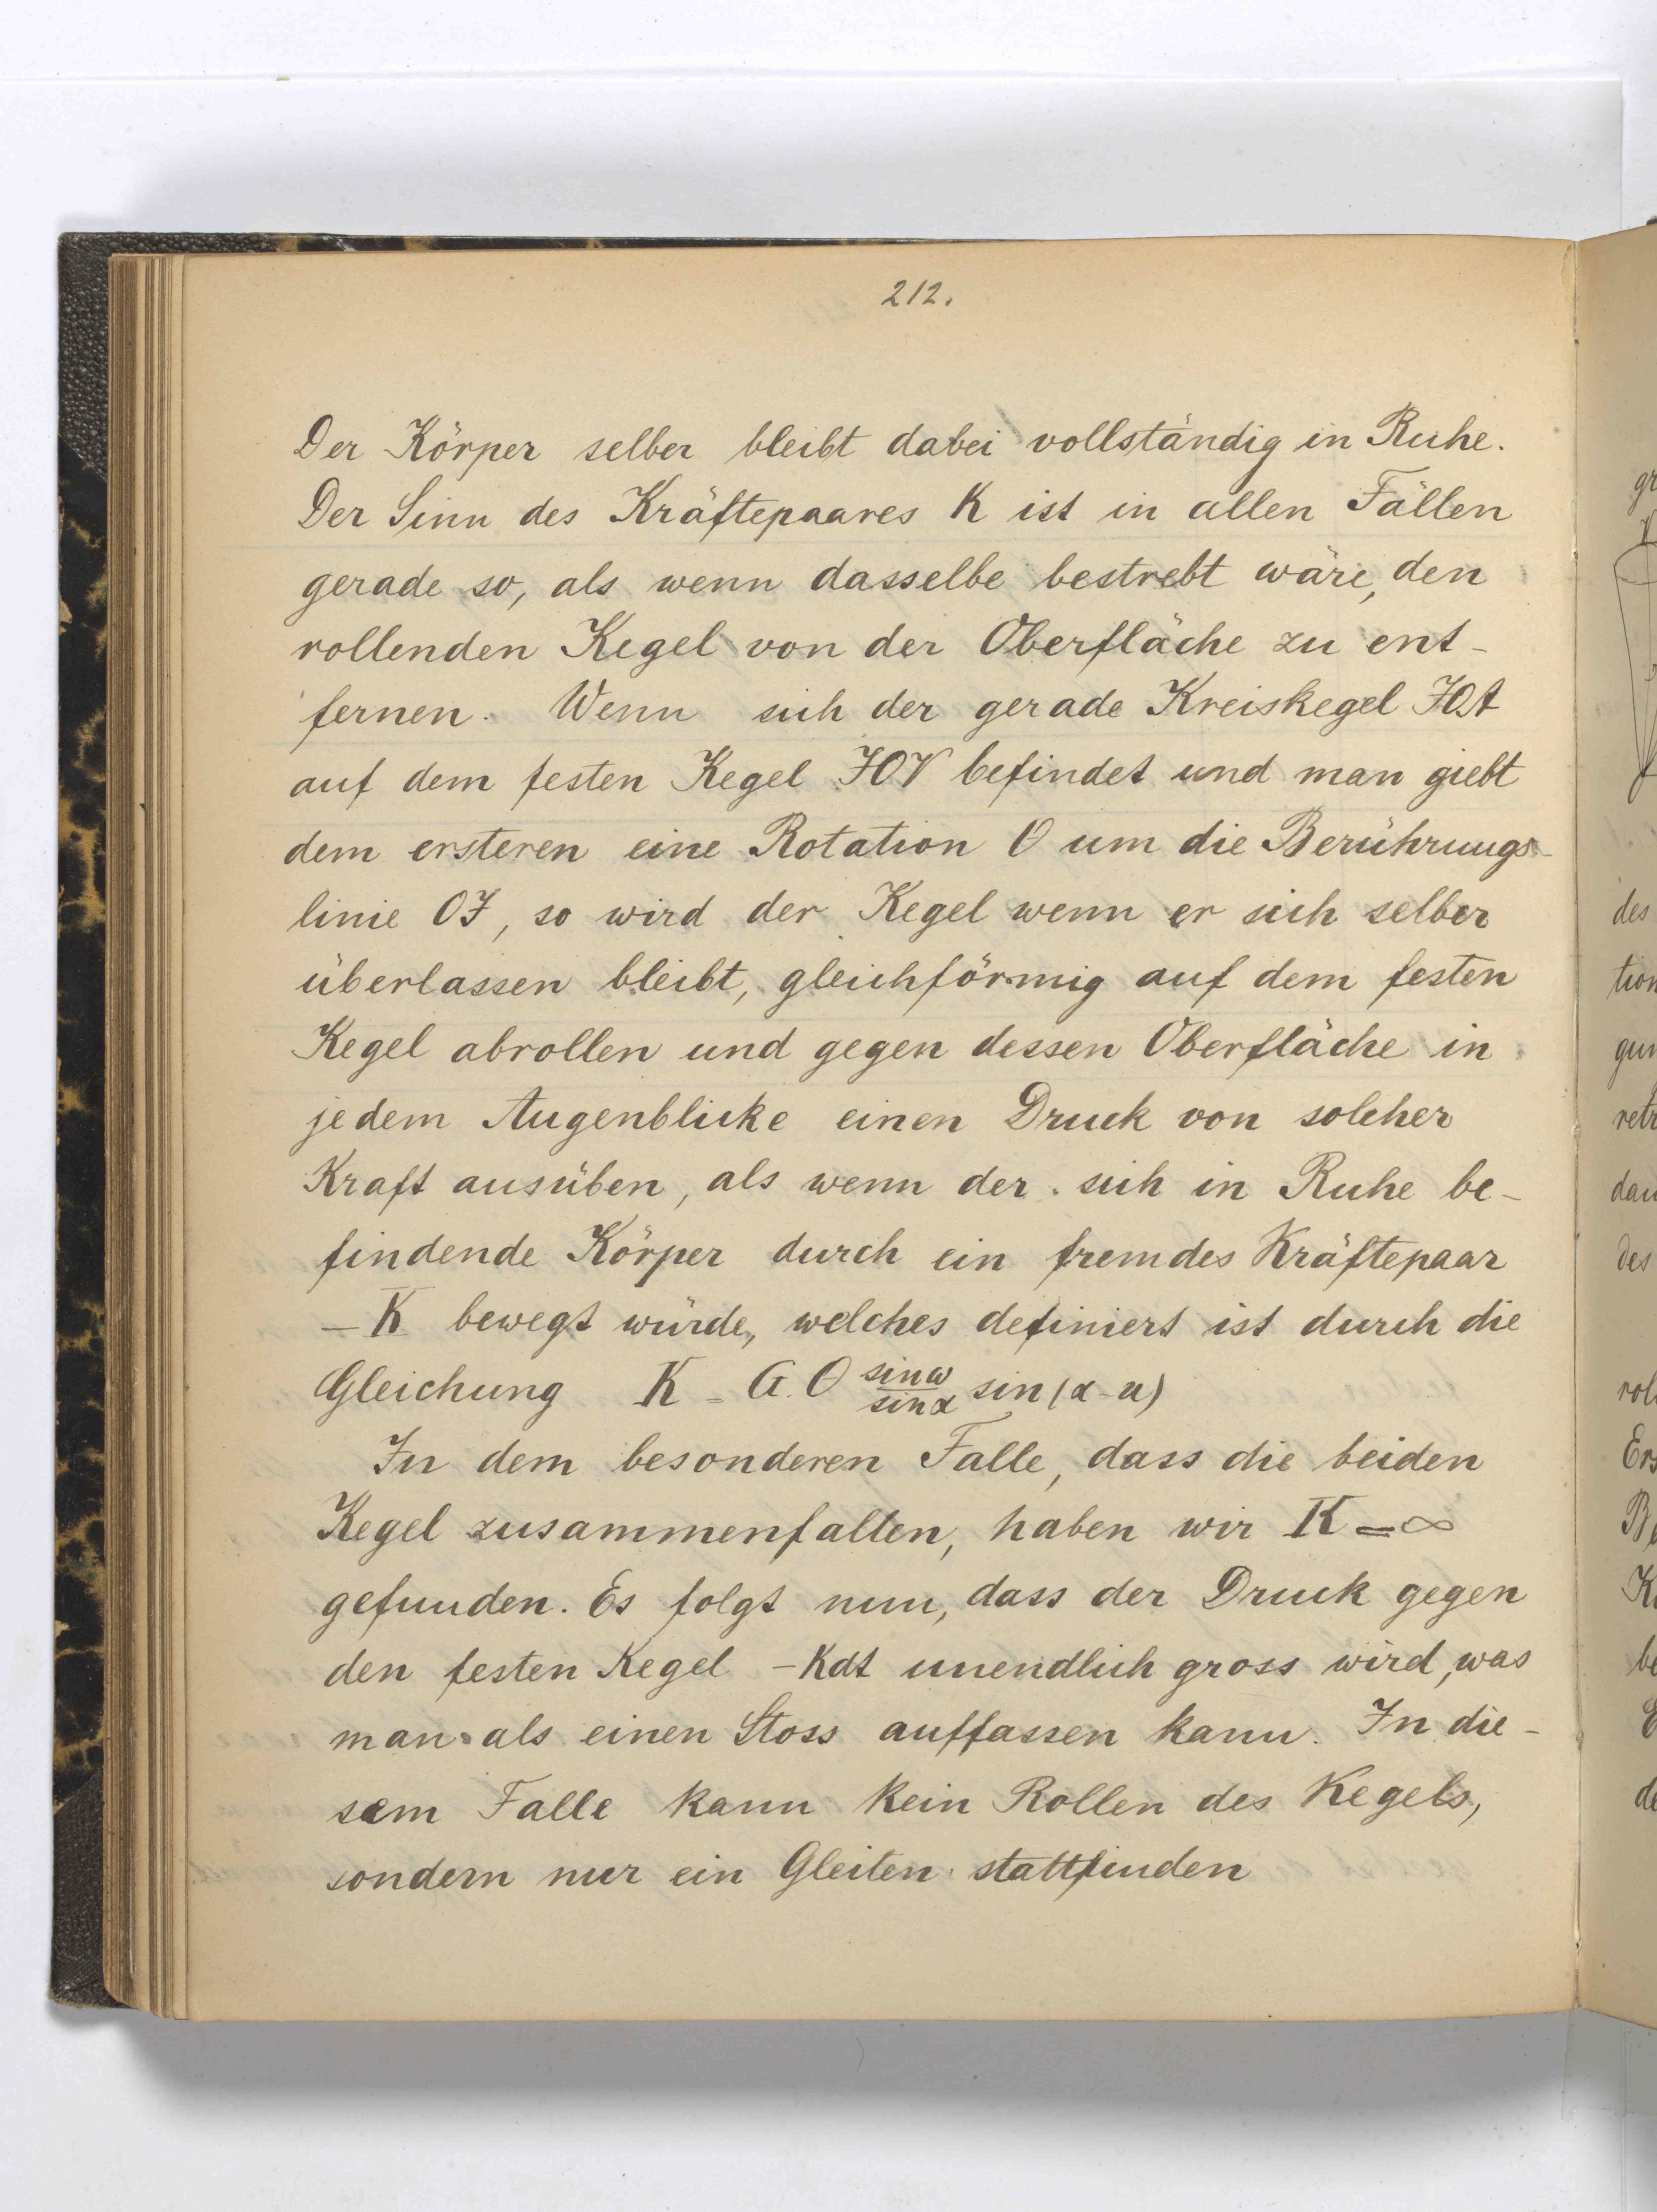 212.
Der Körper selber bleibt dabei vollständig in Ruhe.
Der Sinn des Kräftepaares K ist in allen Fällen
gerade so, als wenn dasselbe bestrebt wäre, den
rollenden Kegel von der Oberfläche zu ent-
fernen. Wenn sich der gerade Kreiskegel JOA
auf dem festen Kegel JOV befindet und man giebt
dem ersteren eine Rotation O um die Berührungs-
linie OJ, so wird der Kegel wenn er sich selber
überlassen bleibt, gleichförmig auf dem festen
Kegel abrollen und gegen dessen Oberfläche in
jedem Augenblicke einen Druck von solcher
Kraft ausüben, als wenn der sich in Ruhe be-
findende Körper durch ein fremdes Kräftepaar
-K bewegt würde, welches definiert ist durch die
Gleichung K = G.O sinω/sinα sin(α-u)
In dem besonderen Falle, dass die beiden
Kegel zusammenfallen, haben wir K=∞
gefunden. Es folgt nun, dass der Druck gegen
den festen Kegel -Kdt unendlich gross wird, was
man als einen Stoss auffassen kann. In die-
sem Falle kann kein Rollen des Kegels,
sondern nur ein Gleiten stattfinden